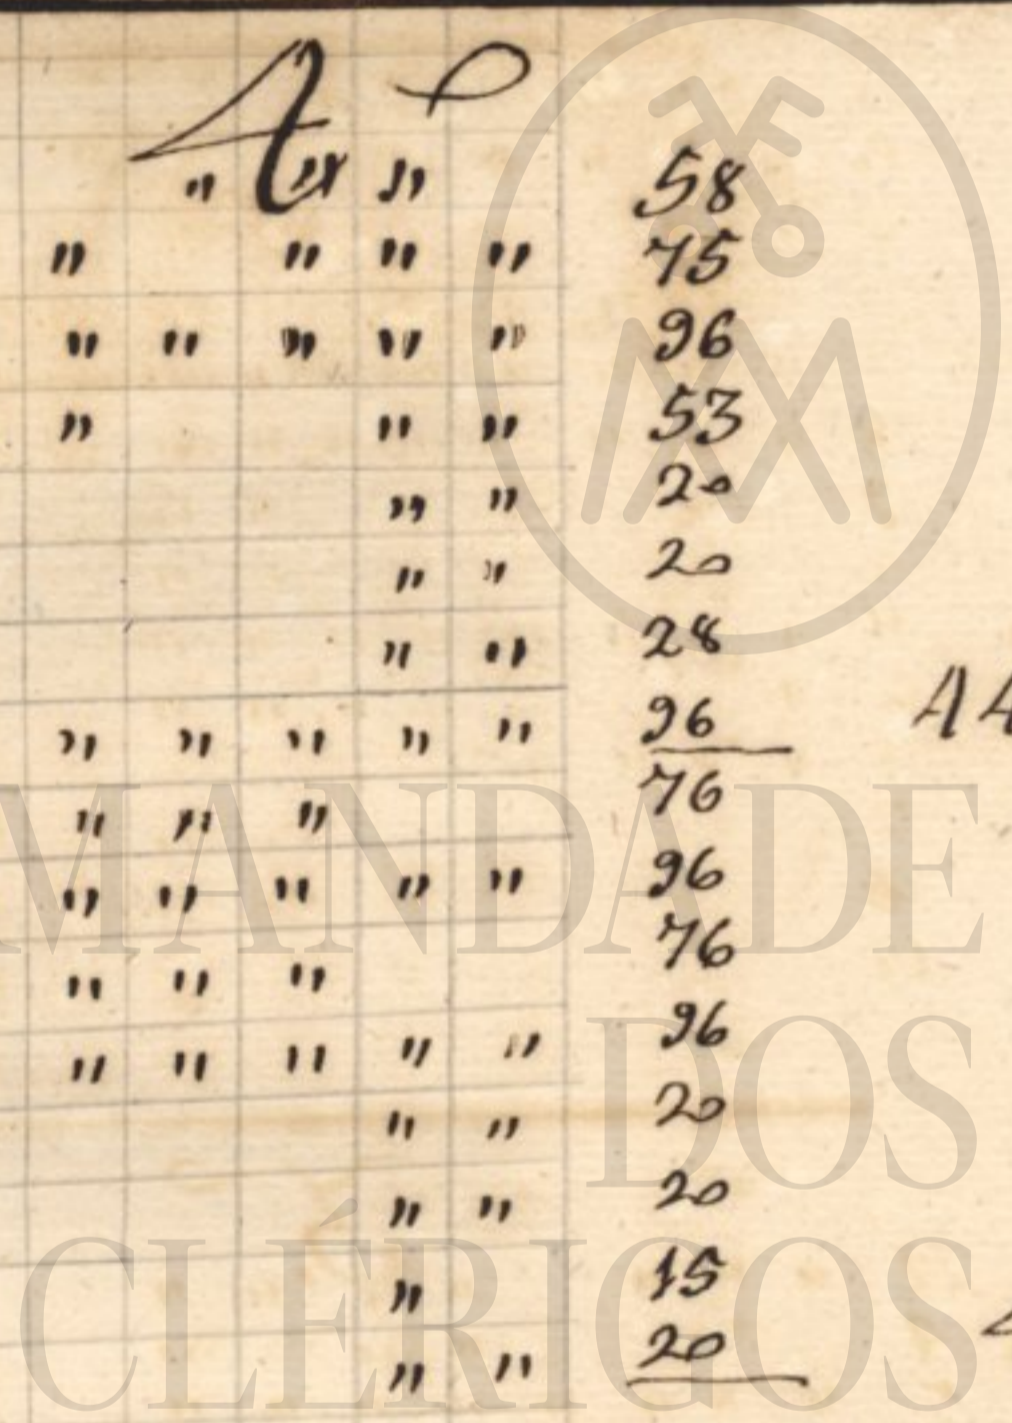 " " " 58
" " " " 75
" " " " " 96
" " " 53
" " 20
" " 20
" " 28
" " " " " 96
" " " 76
" " " " " 96
" " " 76
" " " " " 96
" " 20
" " 20
" 15
" " 20
MANDADE
DOS
CLÉRIGOS